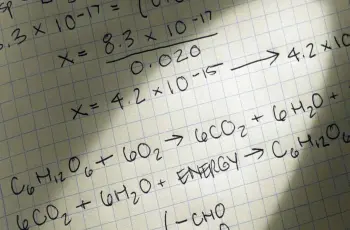 .3 × 10⁻¹⁷ = (0.
x = 8.3 × 10⁻¹⁷
0.020
x = 4.2 × 10⁻¹⁵ → 4.2 × 10
C₆H₁₂O₆ + 6O₂ → 6CO₂ + 6H₂O +
6CO₂ + 6H₂O + ENERGY → C₆H₁₂O₆
(-CHO